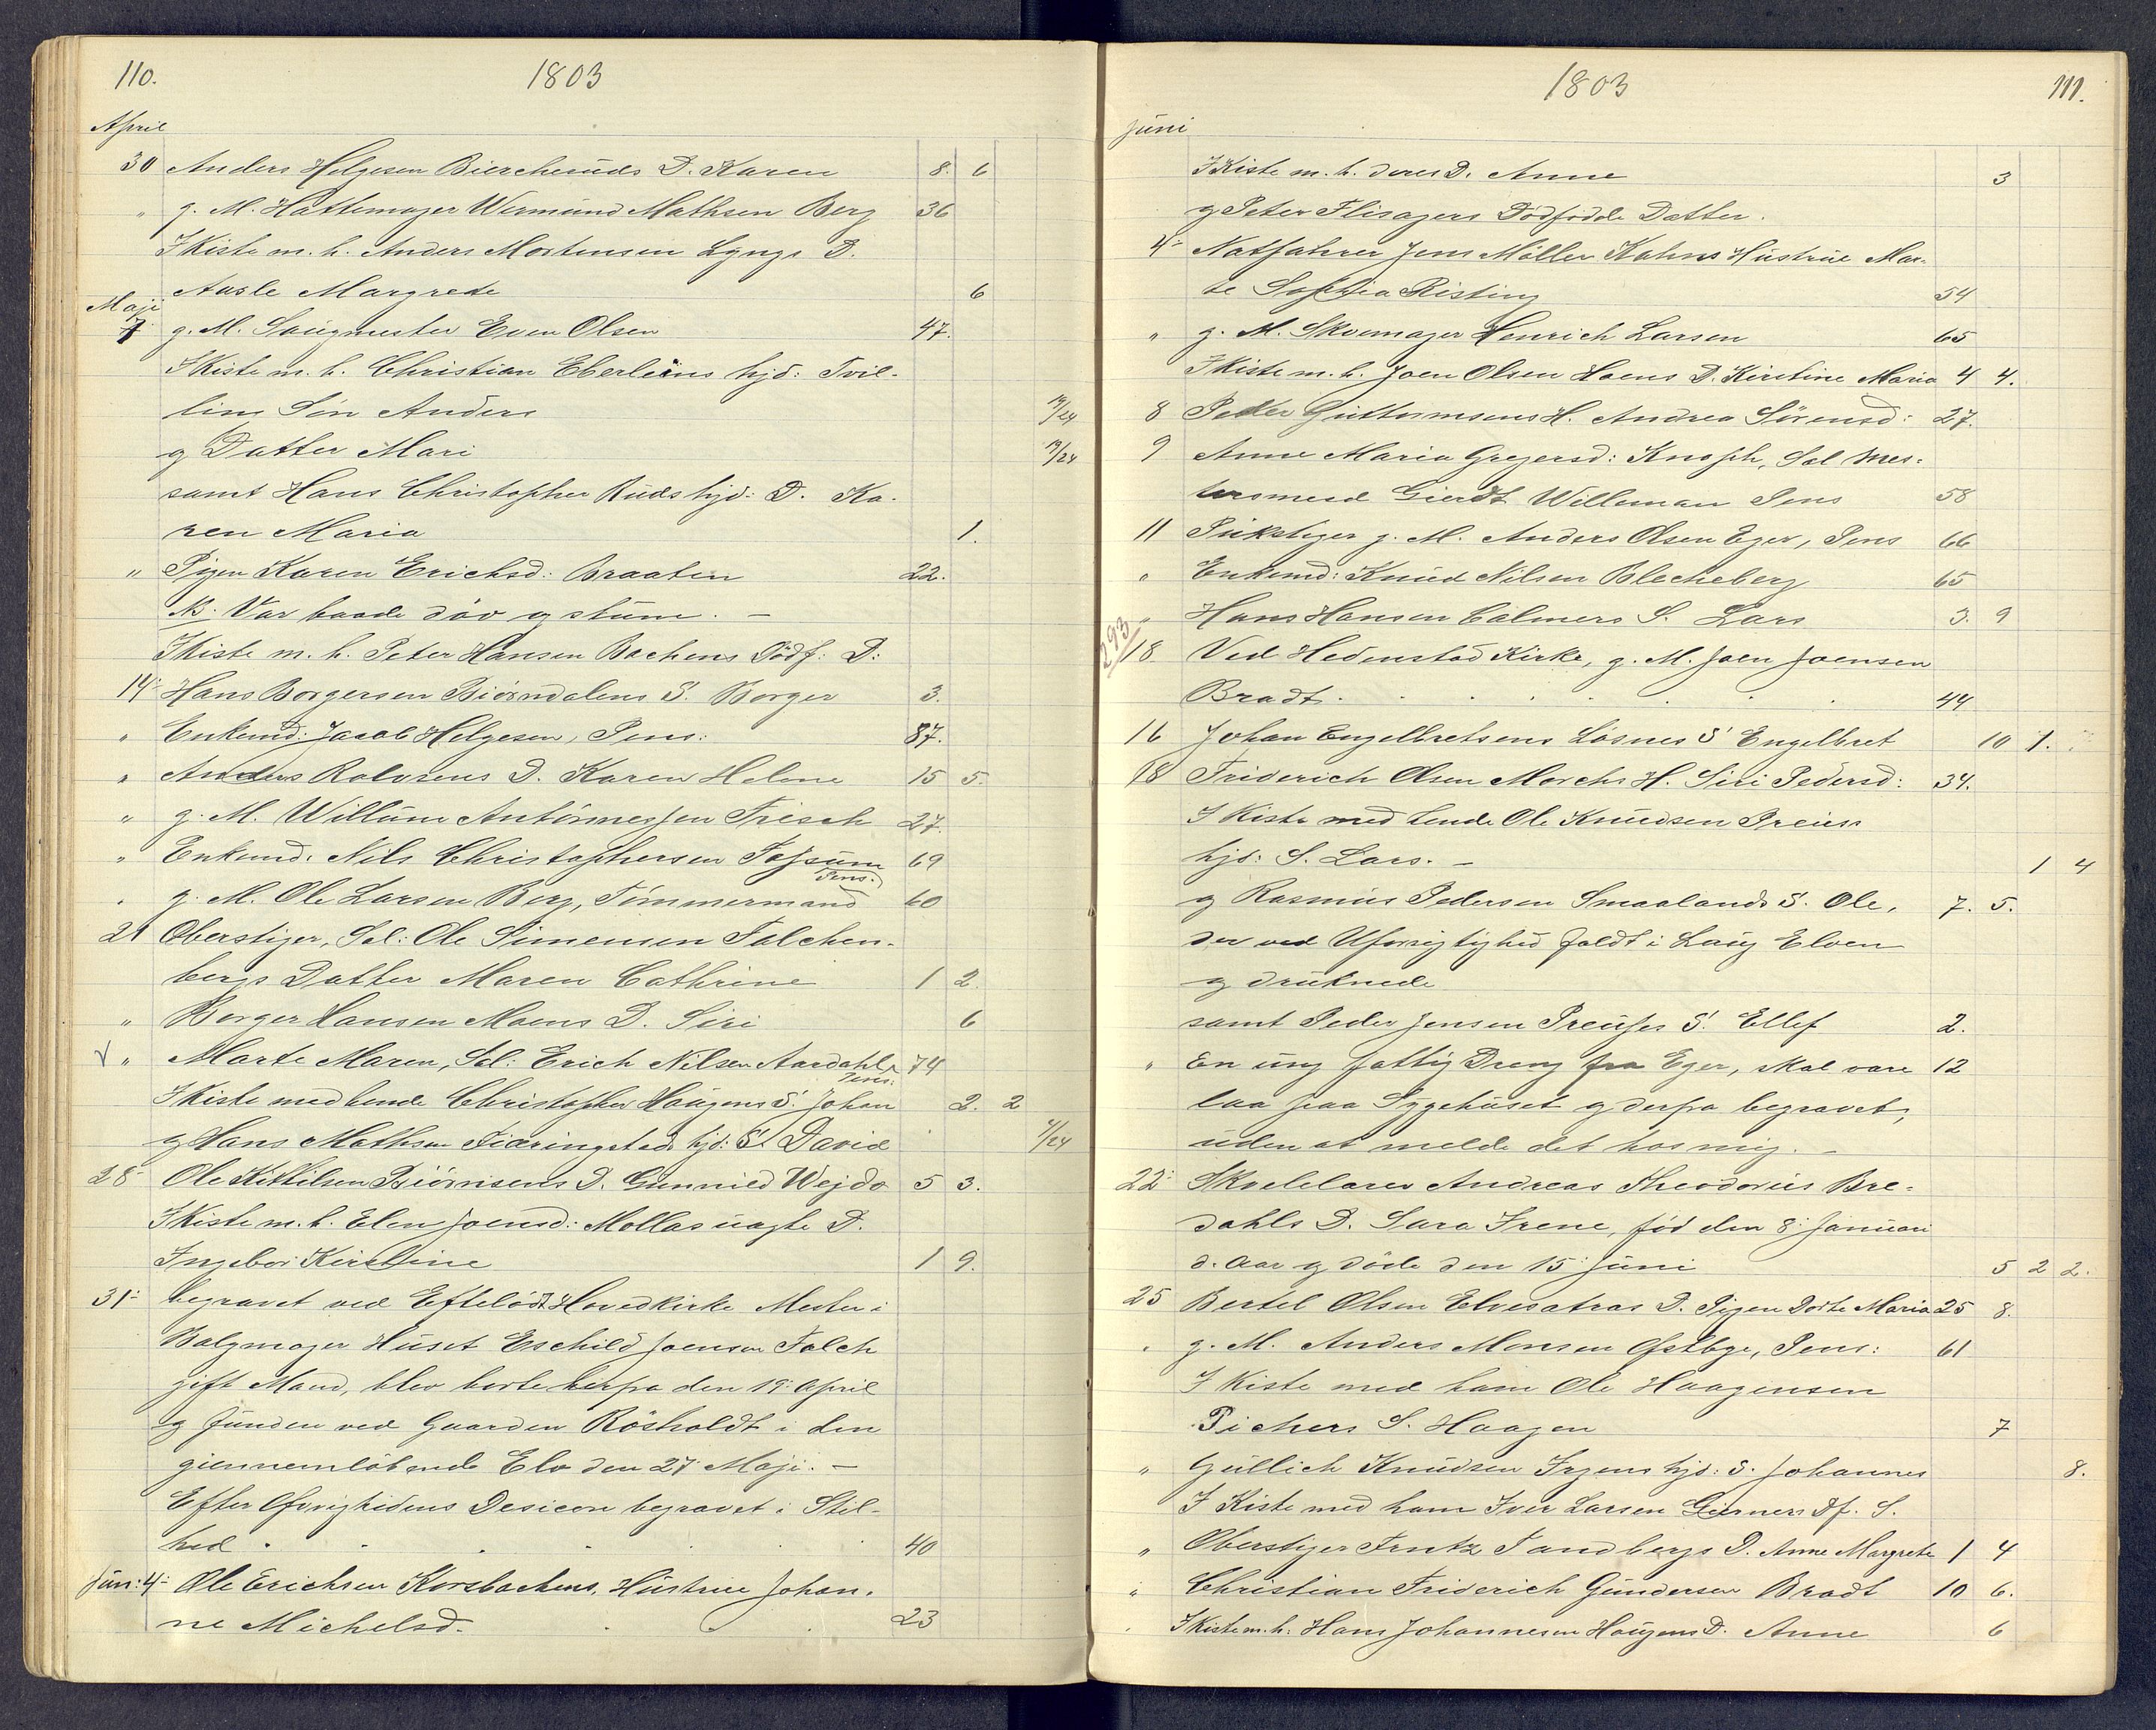 110.
1803
April
30 Anders Helgesen Biercheruds D. Karen 8. 6
" g. M. Hattemager Wermund Mathsen Berg 36
I Kiste m. h. Anders Mortensen Lyngs D.
Aasle Margrede 6
Maji
7 g. M. Saugmester Even Olsen 47.
I Kiste m. h. Christian Eberleins hjd: Tvil-
lins Søn Anders 19/24
g Datter Mari 19/24
samt Hans Christopher Ruds hjd: D. Ka-
ren Maria 1.
" Pigen Karen Erichsd: Braaten 22.
NB. Var baade døv og stum. —
I Kiste m. h. Peter Hansen Bachens Dødf: D:
14: Hans Borgersen Biørndalens S. Borger 3.
" Enkemd: Jacob Helgesen, Pens: 87.
" Anders Rolvsens D. Karen Helene 15 5.
" g. M. Willum Antønnessen Frisak 27.
" Enkemd. Nils Christophersen Fossum 69
Pens.
. g. M. Ole Larsen Berg, Tømmermand 60
21 Oberstiger, Sal: Ole Simensen Falchen-
bergs Datter Maren Cathrine 1 2.
" Borger Hansen Moens D. Siri 6
√ " Marte Maren, Sal: Erich Nilsen Aardahls 74
Pens:
I Kiste med hende Christopher Haugens S. Johan 2. 2
g Hans Mathsen Tiaringstads hjd: S. David 4/24
28 Ole Kittilsen Biørnisens D. Gunnild Wejdo 5 3.
I Kiste m. h. Elen Joensd: Mollas uagte D.
Ingebor Kirstine 1 9.
31: begravet ved Efteløds Hovedkirke Mester i
Balgmager Huset Eschild Joensen Falch
gift Mand, blev borte herfra den 19: April
g funden ved Gaarden Røsholdt i den
giennemløbende Elv den 27 Maji. —
Efter Øvrighedens Desicon begravet i Stil-
hed . . . . . . 40
Juni: 4: Ole Erichsen Korsbachens, Hustrue Johan-
ne Michelsd. . . . 23
1803
111.
Juni
I Kiste m. h. deres D. Anne 3
g Peter Flisagers Dødfødde Datter.
4: Natfahrer Jens Møller Kahns Hustrue Mar-
te Sophia Risting 54
" g. M. Skoemager Henrich Larsen 65
I Kiste m. h. Joen Olsen Hoens D. Kirstine Maria 4 4.
8 Peder Guttormsens H. Andrea Sørensd: 27.
9 Anne Maria Gregersd: Knoph, Sal Mes-
tersmend Gierdt Willeman Pens 58
11 Pukstiger g. M. Anders Olsen Eger, Pens 66
" Enkemd: Knud Nilsen Blecheberg 65
" Hans Hansen Calmers S. Lars 3. 9
293
18 Ved Hedenstad Kirke, g. M. Joen Joensen
Bradt . . . . . . 44
16 Johan Engelbretsens Løsnes S Engelbret 10 1.
18 Friderich Olsen Morchs H. Siri Pedersd: 34.
I Kiste med hende Ole Knudsen Preuss
hjd: S. Lars. — 1 4
g Rasmus Pedersen Smaalands S. Ole, 7. 5.
der ved Uforsigtighed faldt i Laug Elven
g druknede
samt Peder Jensen Preuses S. Ellef 2.
" En ung fattig Dreng fra Eger, skal vare 12
laa paa Sygehuset g derfra begravet,
uden at melde det hos mig. —
22: Skolelarer Andreas Theodorus Bre-
dahls D. Sara Irene, fød den 8: Januari
d. Aar g døde den 15 Juni 5 2 2.
25 Bertel Olsen Elvesatras D. Pigen Dorte Maria 25 8.
. g. M. Anders Monsen Østbye, Pens: 61
I Kiste med ham Ole Haagensen
Pichers S. Haagen 7
" Gullich Knudsen Irgens hjd: S. Johannes 8.
I Kiste med ham Iver Larsen Girners Df. S.
" Oberstiger Frntz Sandbergs D. Anne Margrete 1 4
" Christian Friderich Gundersen Bradt 10 6.
. I Kiste m. h: Hans Johannesen Haugens D. Anne 6